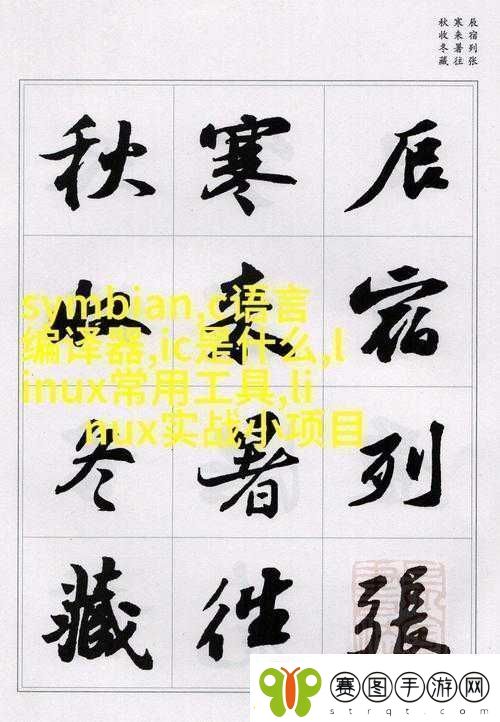 辰宿列张
寒来暑往
秋收冬藏
辰宿列張
寒来暑往
秋收冬藏
symbian,c语言
编译器,ic是什么,l
inux常用工具,li
nux实战小项目
赛图手游网
strqt.com